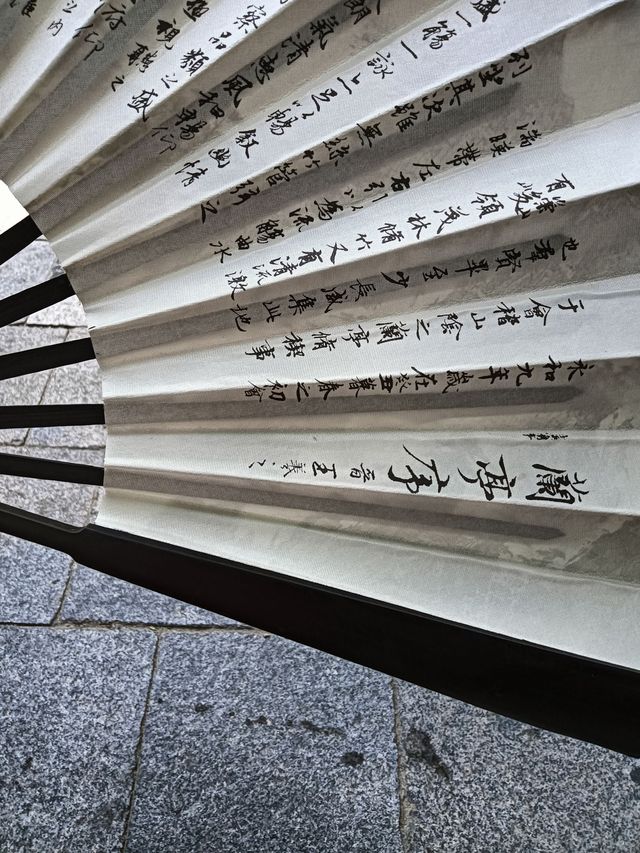 蘭亭序 晉王羲之
永和九年歲在癸丑暮春之初會
于會稽山陰之蘭亭脩禊事
也群賢畢至少長咸集此地
有崇山峻領茂林脩竹又有清流激
湍暎帶左右引以為流觴曲水
列坐其次雖無絲竹管弦之
盛一觴一詠亦足以暢敘幽情
朗氣清惠風和暢仰
察品類之盛
極視聽之
俯仰
之內